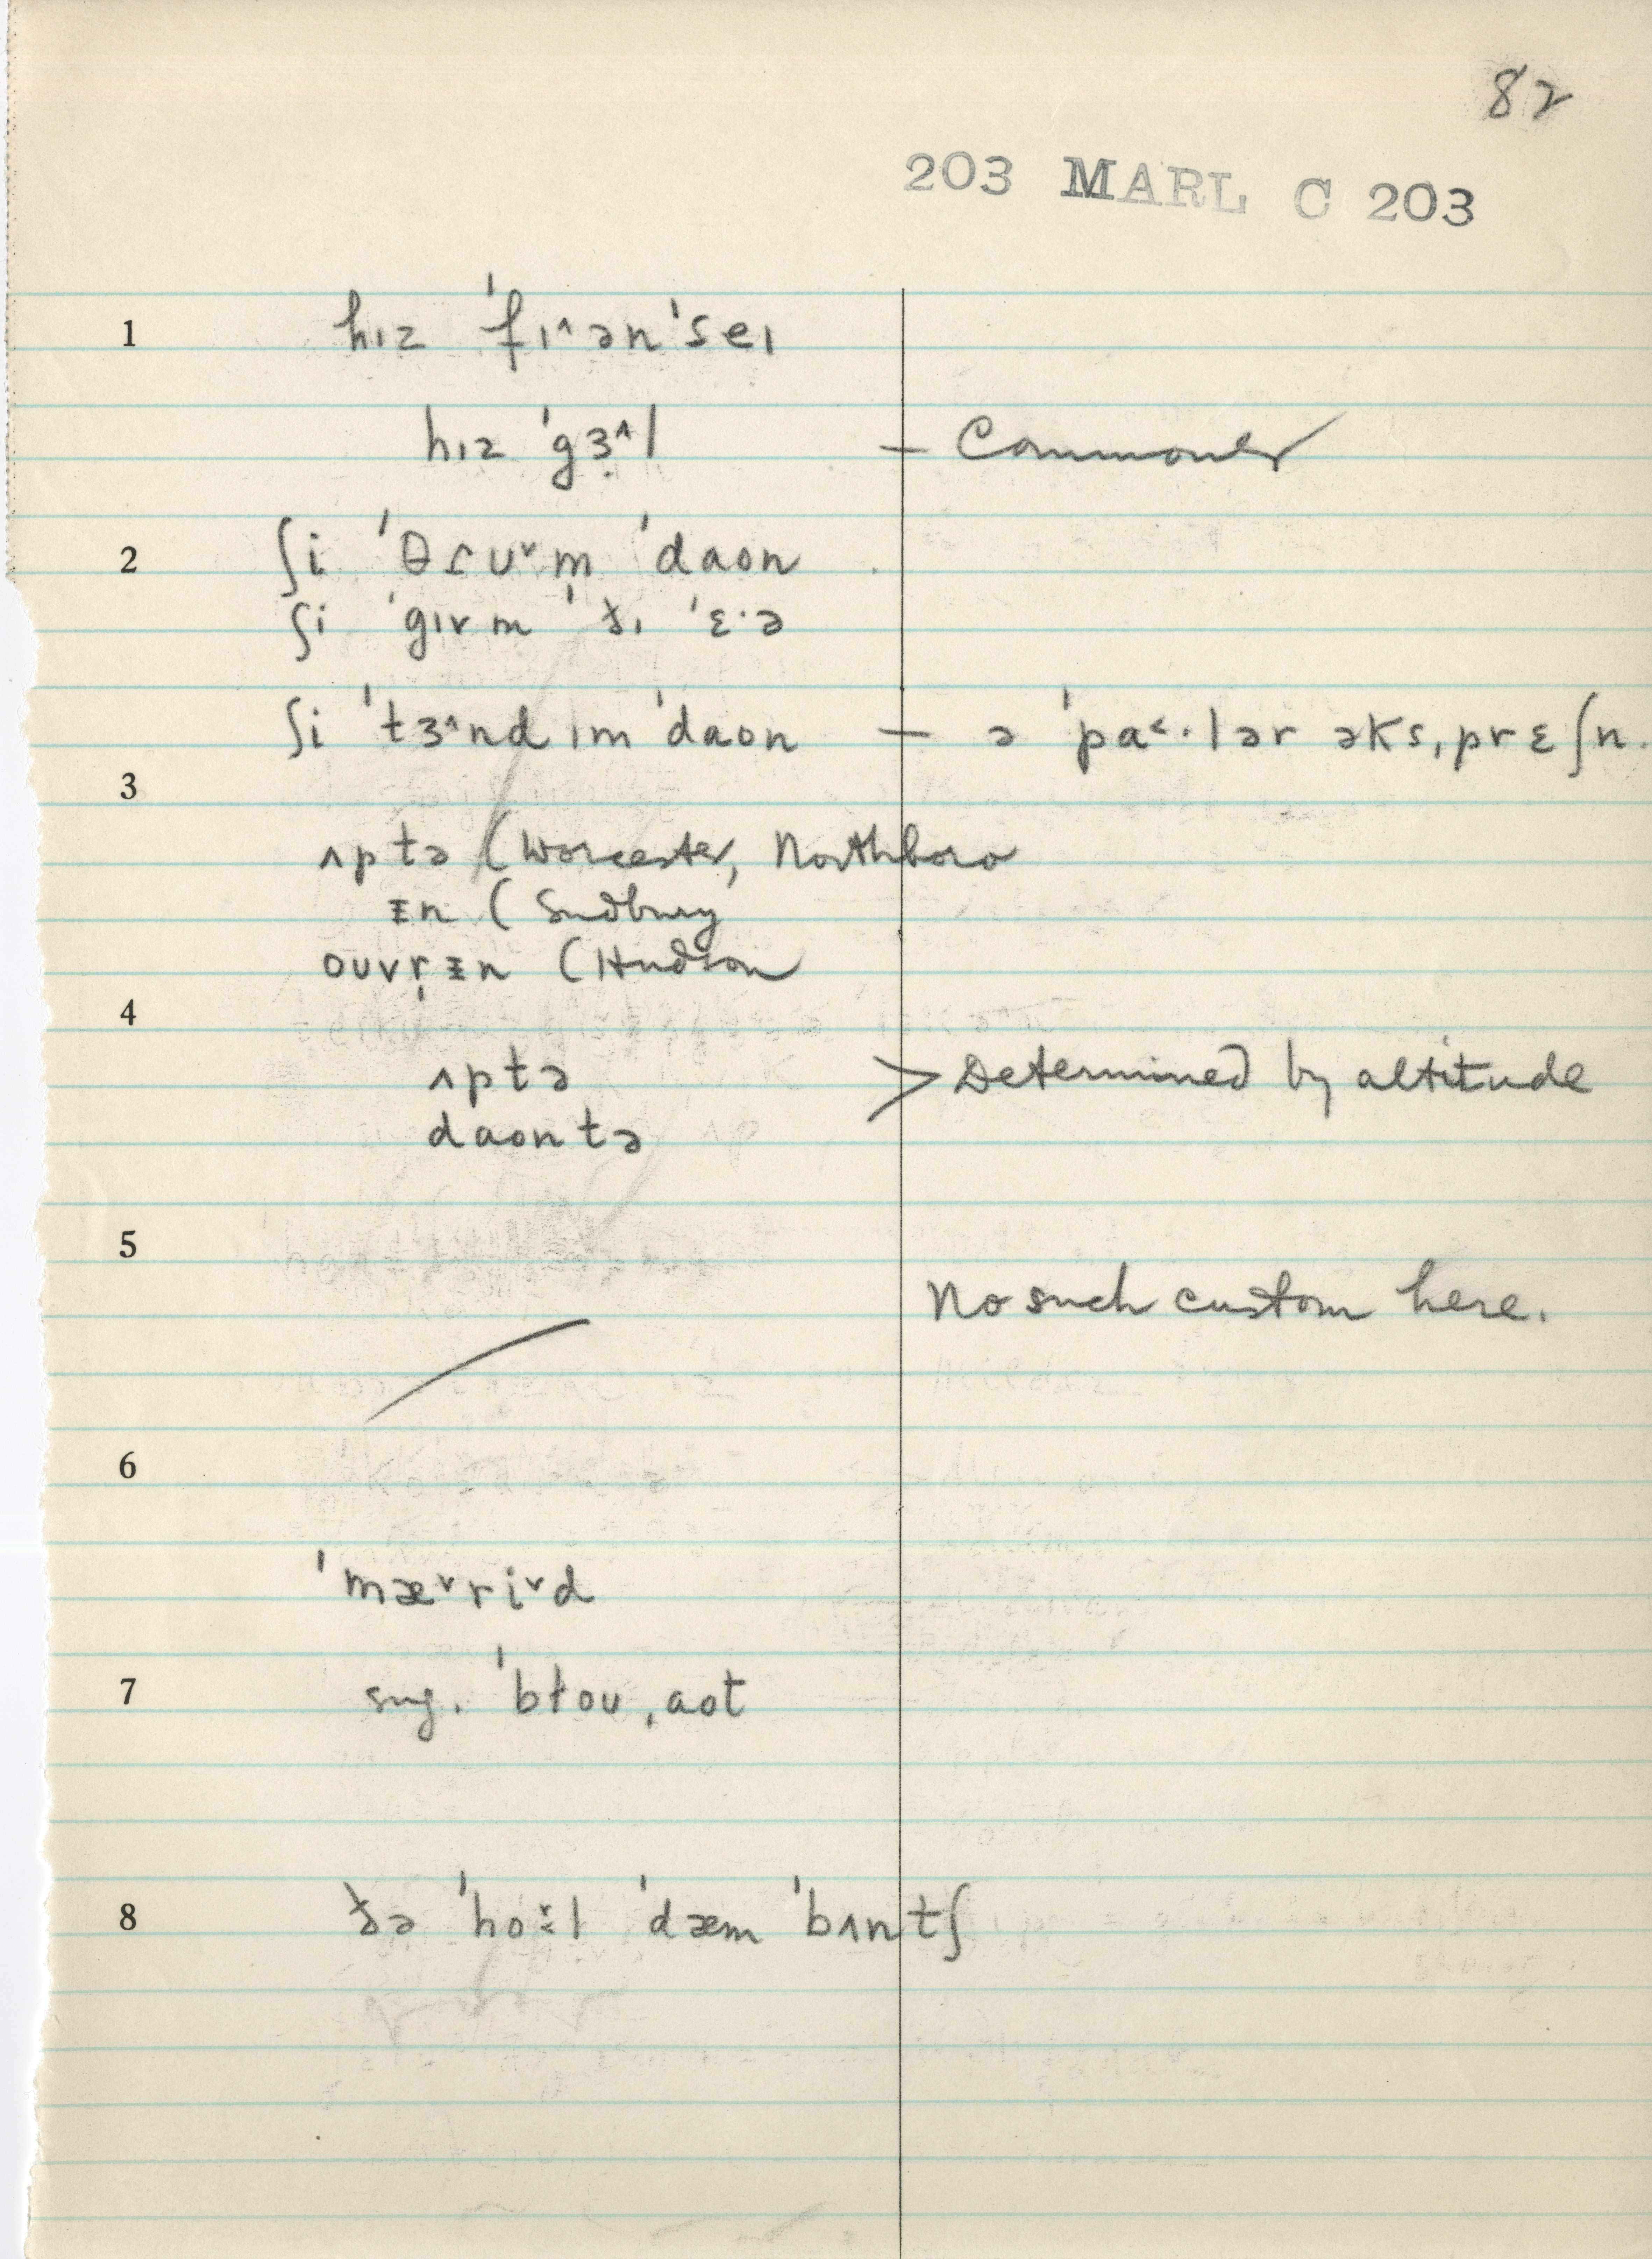 82
203 MARL C 203
1 hɪz ˈfɪ˄ənˈseɪ
hɪz ˈgɜ˄l — Commoner
2 ʃi ˈθɾʊ˅m̩ ˈdaon
ʃi ˈgɪvm̩ ðɪ ˈɛ·ə
ʃi ˈtɜ˄nd ɪm ˈdaon — ə ˈpa˂·lər əksˌprɛʃn.
3
ʌptə (Worcester, Northboro
ɪn (Sudbury
ouvr̩ɪn (Hudson
4
ʌptə > Determined by altitude
daontə
5
No such custom here.
6
ˈmæ˅ri˅d
7 sug. ˈbɫouˌaot
8 ðə ˈhol ˈdæm ˈbʌntʃ